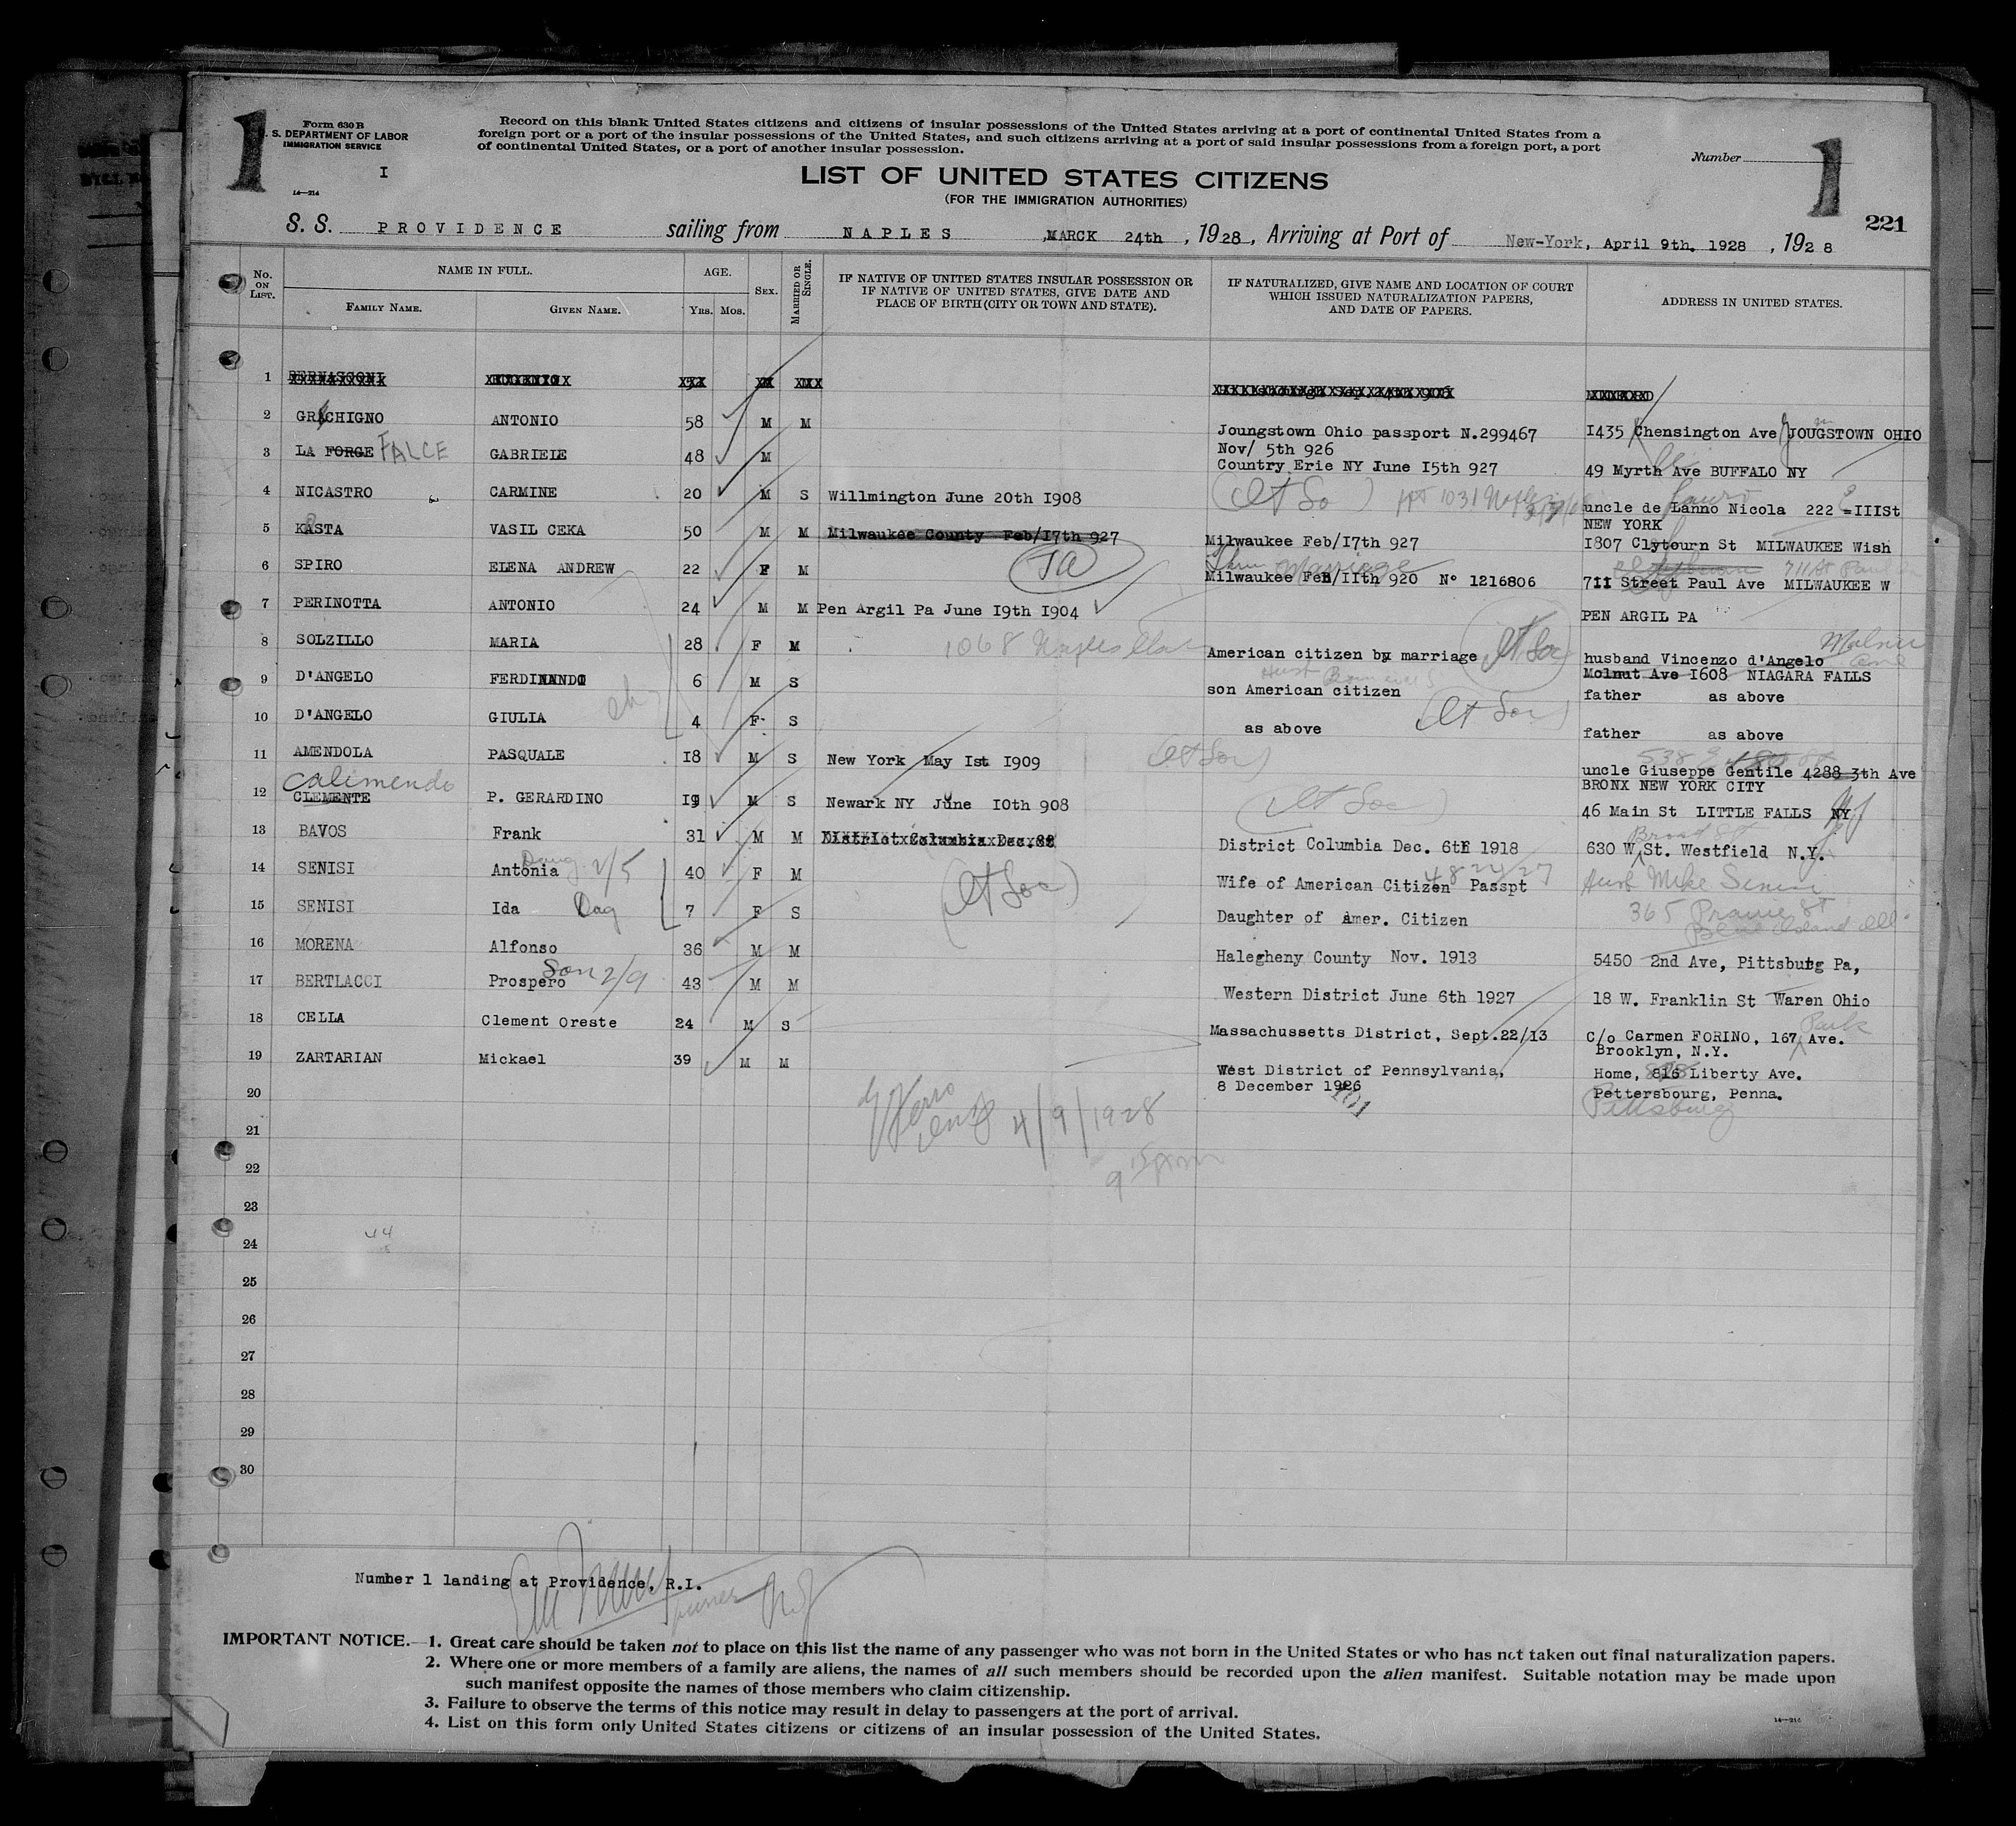 1
Form 630 B
S. DEPARTMENT OF LABOR
IMMIGRATION SERVICE
I
14—214
Record on this blank United States citizens and citizens of insular possessions of the United States arriving at a port of continental United States from a
foreign port or a port of the insular possessions of the United States, and such citizens arriving at a port of said insular possessions from a foreign port, a port
of continental United States, or a port of another insular possession.
Number
1
LIST OF UNITED STATES CITIZENS
(FOR THE IMMIGRATION AUTHORITIES)
221
S. S. PROVIDENCE sailing from NAPLES ,MARCK 24th , 1928, Arriving at Port of New-York, April 9th. 1928 , 1928
No. ON LIST.
NAME IN FULL.
FAMILY NAME.
GIVEN NAME.
AGE.
YRS. MOS.
SEX.
MARRIED OR SINGLE.
IF NATIVE OF UNITED STATES INSULAR POSSESSION OR
IF NATIVE OF UNITED STATES, GIVE DATE AND
PLACE OF BIRTH (CITY OR TOWN AND STATE).
IF NATURALIZED, GIVE NAME AND LOCATION OF COURT
WHICH ISSUED NATURALIZATION PAPERS,
AND DATE OF PAPERS.
ADDRESS IN UNITED STATES.
1 BERNASCONI EUGENIO
2 GRACHIGNO ANTONIO 58 M M Joungstown Ohio passport N.299467 1435 Chensington Ave JOUGSTOWN OHIO
Nov/ 5th 926
3 LA FORGE FALCE GABRIELE 48 M Country Erie NY June I5th 927 49 Myrth Ave BUFFALO NY
4 NICASTRO CARMINE 20 M S Willmington June 20th I908 uncle de Lanno Nicola 222 =IIISt
NEW YORK
5 KASTA VASIL CEKA 50 M M Milwaukee County Feb/I7th 927 Milwaukee Feb/I7th 927 I807 Clytourn St MILWAUKEE Wish
Marriage
6 SPIRO ELENA ANDREW 22 F M Milwaukee FeB/IIth 920 N° 1216806 711 Street Paul Ave MILWAUKEE W
7 PERINOTTA ANTONIO 24 M M Pen Argil Pa June I9th I904 PEN ARGIL PA
8 SOLZILLO MARIA 28 F M 1068 Naples American citizen by marriage husband Vincenzo d'Angelo
Molnut Ave I608 NIAGARA FALLS
9 D'ANGELO FERDINANDO 6 M S son American citizen father as above
10 D'ANGELO GIULIA 4 F S as above father as above
11 AMENDOLA PASQUALE I8 M S New York May Ist I909 uncle Giuseppe Gentile 4288 3th Ave
BRONX NEW YORK CITY
Calimendo
12 CLEMENTE P. GERARDINO I9 M S Newark NY June I0th 908 46 Main St LITTLE FALLS NY
13 BAVOS Frank 31 M M District Columbia Dec. 6th 1918 630 W St. Westfield N.Y.
Broad St
14 SENISI Antonia 40 F M Wife of American Citizen Passpt
15 SENISI Ida Dag 7 F S Daughter of Amer. Citizen 365 Prairie St
16 MORENA Alfonso 36 M M Halegheny County Nov. 1913 5450 2nd Ave, Pittsburg Pa,
17 BERTLACCI Prospero Son 2/9 43 M M Western District June 6th 1927 18 W. Franklin St Waren Ohio
18 CELLA Clement Oreste 24 M S Massachussetts District, Sept.22/13 C/o Carmen FORINO, 167 Park Ave.
Brooklyn, N.Y.
19 ZARTARIAN Mickael 39 M M West District of Pennsylvania, Home, 816 Liberty Ave.
8 December 1926 Pettersbourg, Penna.
101
Pittsburg
4/9/1928
20
21
22
23
24
25
26
27
28
29
30
Number 1 landing at Providence, R.I.
IMPORTANT NOTICE.—1. Great care should be taken not to place on this list the name of any passenger who was not born in the United States or who has not taken out final naturalization papers.
2. Where one or more members of a family are aliens, the names of all such members should be recorded upon the alien manifest. Suitable notation may be made upon
such manifest opposite the names of those members who claim citizenship.
3. Failure to observe the terms of this notice may result in delay to passengers at the port of arrival.
4. List on this form only United States citizens or citizens of an insular possession of the United States.
14—214